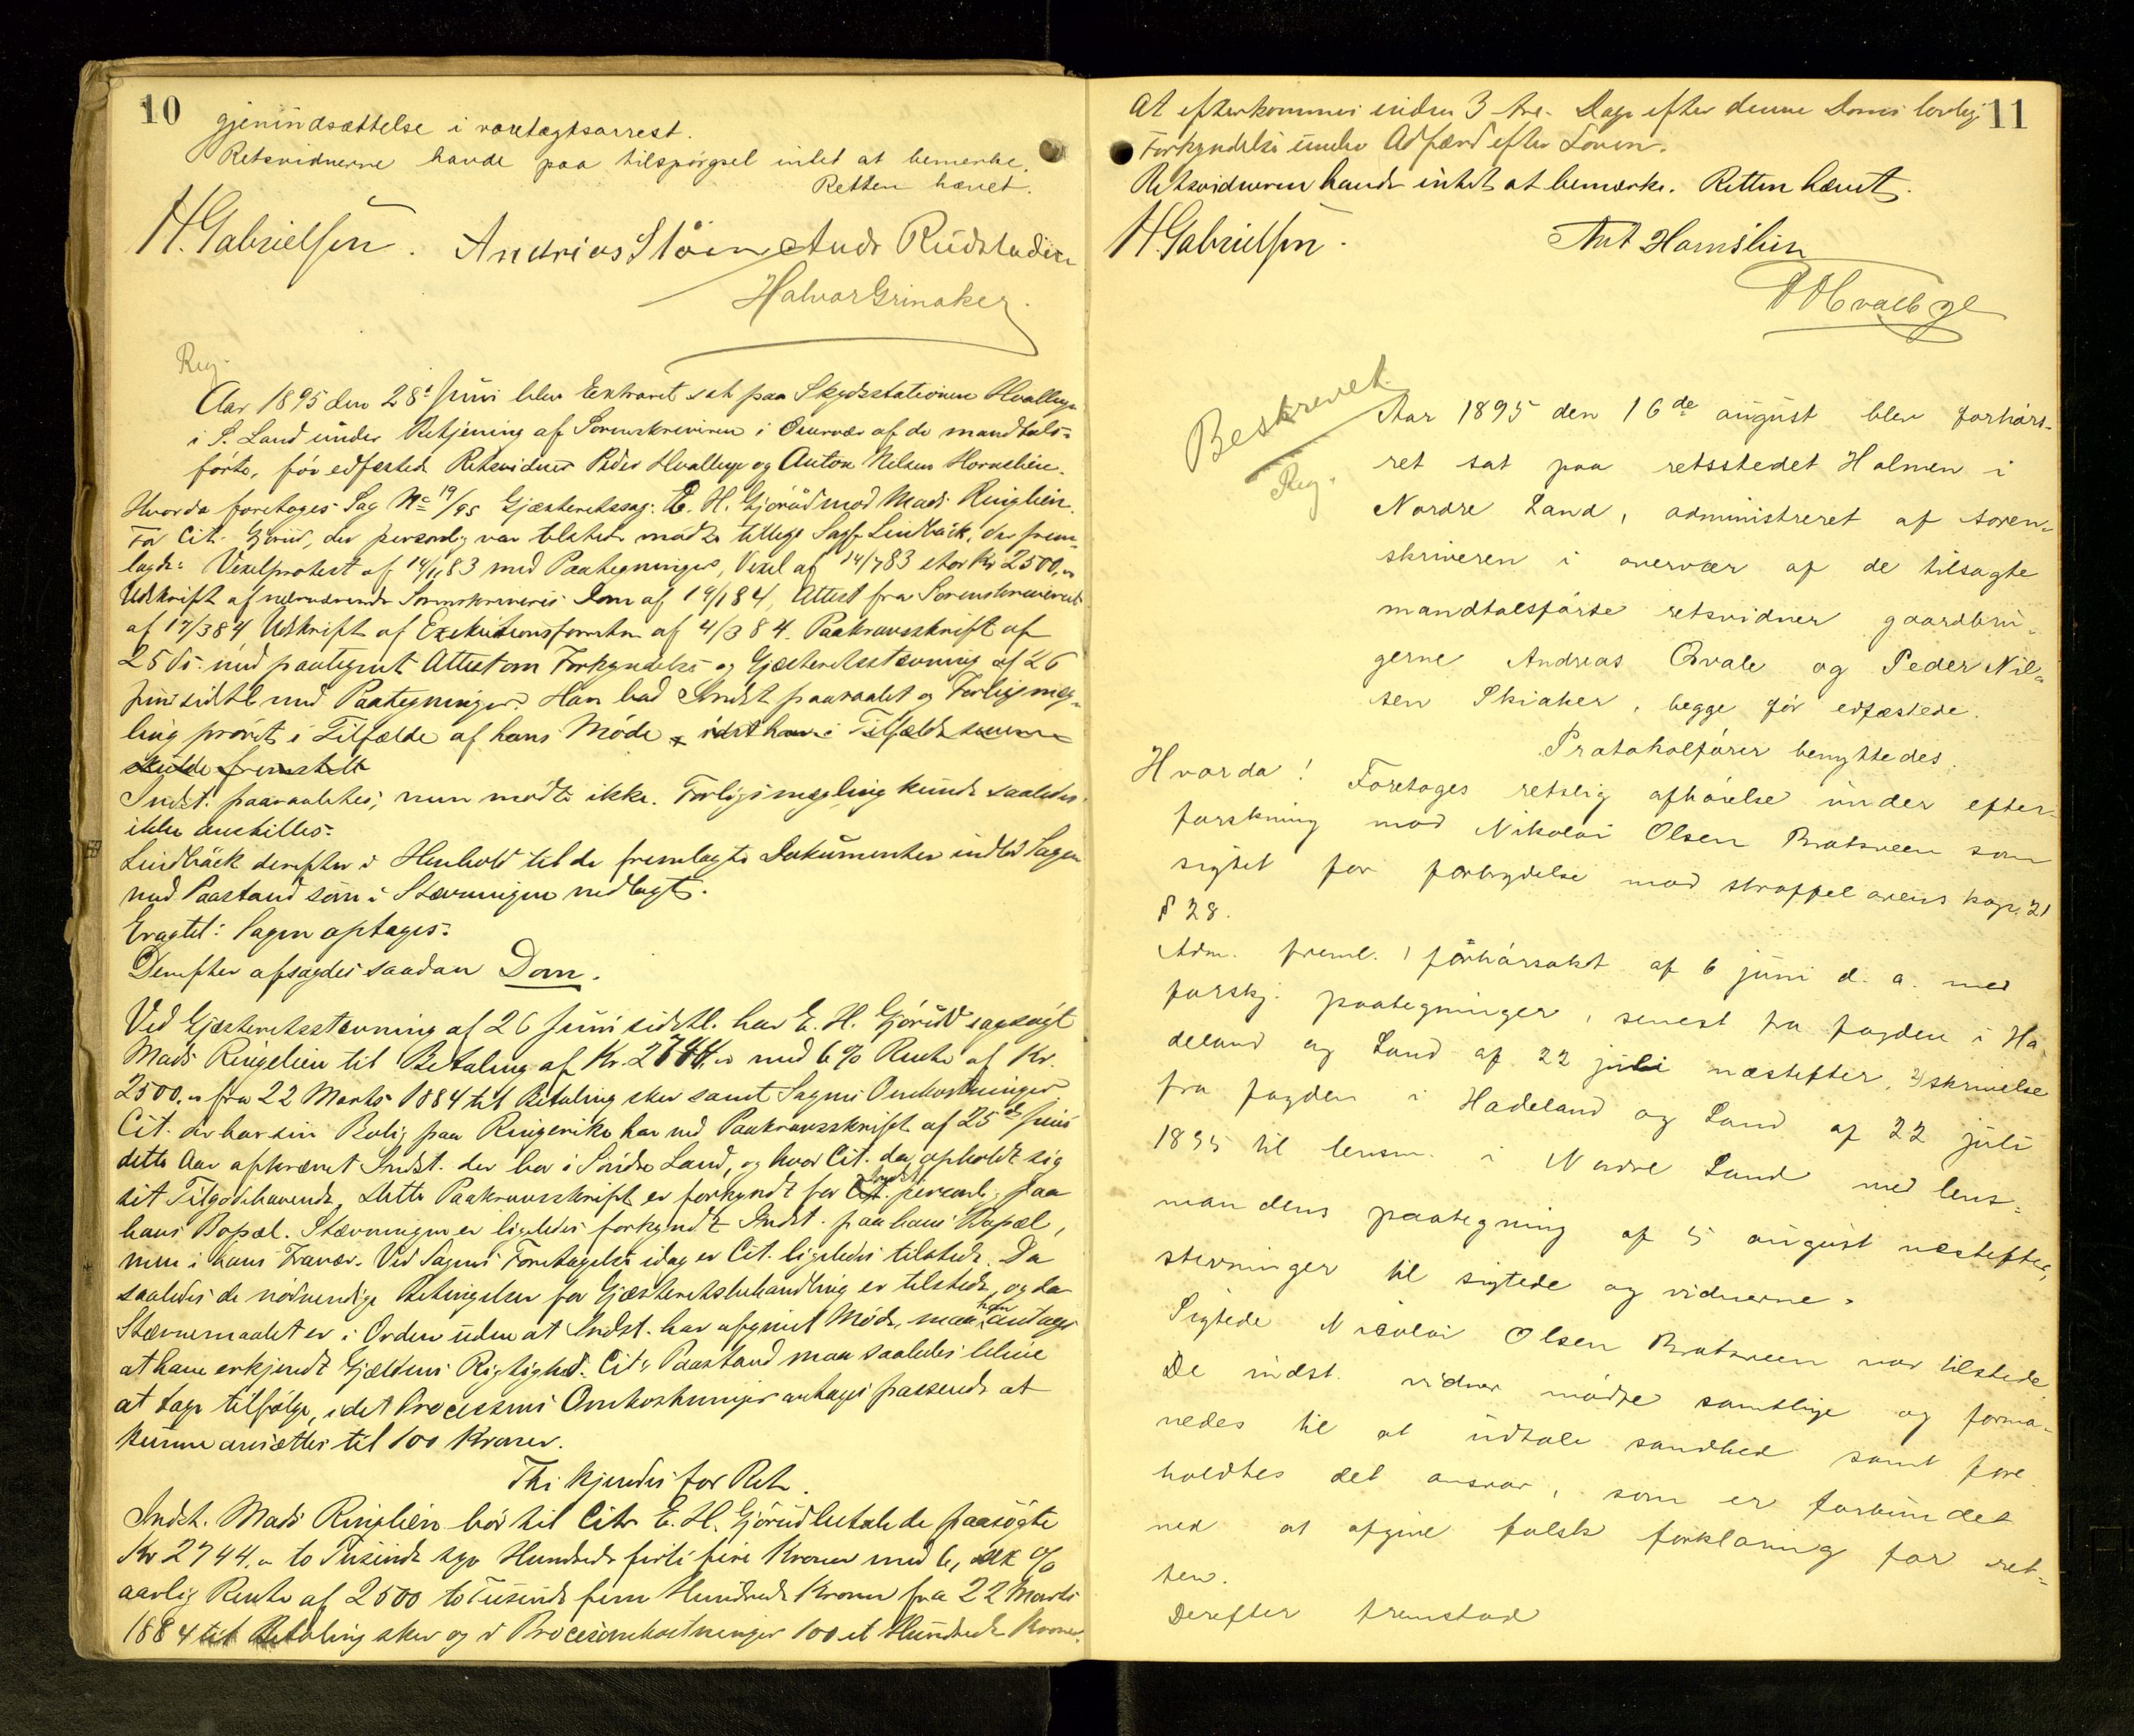 10
gjenindsættelse i varetægtsarrest.
Retsvidnerne havde paa tilspørgsel intet at bemerke.
Retten hævet.
H. Gabrielsen. Andreas Stöen Andr Rudstaden
Halvor Grinaker.
Reg.
Aar 1895 den 28d Juni blev Extraret sat paa Skydsstationen Hvalbye
i S. Land under Betjening af Sorenskriveren i Overvær af de mandtals-
førte, før edfæstede Retsvidner Peder Hvalbye og Anton Nilsen Hornslien.
Hvorda foretoges Sag No 19/95 Gjæsteretssag: E. H. Gjörud mod Mads Ringlien.
For Cit. Gjörud, der personlig var tilstede mødte tillige Sagf. Lindbäck, der frem-
lagde: Vexelprotest af 14/11 83 med Paategninger, Vexel af 14/7 83 stor Kr 2500,00
Udskrift af nærværende Sorenskriveris Dom af 19/1 84, Attest fra Sorenskriveren
af 17/3 84 Udskrift af Exekutionsforretn. af 4/3 84. Paakravsskrift af
25 ds. med paategnet Attest om Forkyndelse og Gjæsteretsstævning af 26
Juni sidstl med Paategninger. Han bad Indst paaraabt og Forligsmæg-
ling prøvet i Tilfælde af hans Møde idet han i Tilfælde
skulde fremstille
Indst. paaraabtes; men mødte ikke. Forligsmægling kunde saaledes
ikke anstilles.
Lindbäck derefter i Henhold til de fremlagte Dokumenter indlod Sagen
med Paastand som i Stævningen nedlagt.
Eragtet: Sagen optages.
Derefter afsagdes saadan Dom.
Ved Gjæsteretsstævning af 26 Juni sidstl. har E. H. Gjörud sagsøgt
Mads Ringelien til Betaling af Kr. 2744,00 med 6% Rente af Kr.
2500,00 fra 22 Marts 1884 til Betaling sker samt Sagens Omkostninger
Cit. der har sin Bolig paa Ringerike har ved Paakravsskrift af 25de Juni
dette Aar afkrævet Indst. der bor i Söndre Land, og hvor Cit. da opholdt sig
sit Tilgodehavende, Dette Paakravsskrift er forkyndt for Indst. personlig paa
hans Bopæl. Stævningen er ligeledes forkyndt Indst. paa hans Bopæl,
men i hans Fravær. Ved Sagens Foretagelse idag er Cit. ligeledes tilstede. Da
saaledes de nødvendige Betingelser for Gjæsteretsbehandling er tilstede, og da
Stævnemaalet er i Orden uden at Indst. har afgivet Møde, maa han antages
at have erkjendt Gjældens Rigtighed. Cit's Paastand maa saaledes blive
at tage tilfølge, idet Processens Omkostninger antages passende at
kunne ansættes til 100 Kroner.
Thi kjendes for Ret.
Indst. Mads Ringlien bör til Citr E. H. Gjörud betale de paasøgte
Kr 2744,00 to Tusinde syv Hundrede firti fire Kroner med 6, sex %
aarlig Rente af 2500 to Tusinde fem Hundrede Kroner fra 22 Marts
1884 til Betaling sker og i Procesomkostninger 100 et Hundrede Kroner.
11
At efterkommes inden 3 tre Dage efter denne Doms lovlige
Forkyndelse under Adfærd efter Loven.
Retsvidnerne havde intet at bemærke. Retten hævet.
H. Gabrielsen. Ant Hornslien
P Hvalbye
Beskrevet
Reg.
Aar 1895 den 16de august blev forhørs-
ret sat paa retsstedet Holmen i
Nordre Land, administreret af soren-
skriveren i overvær af de tilsagte
mandtalsførte retsvidner gaardbru-
gerne Andreas Qvale og Peder Nil-
sen Skiaker, begge før edfæstede.
Protokolfører benyttedes.
Hvorda! Foretoges retslig afhørelse under efter-
forskning mod Nikolai Olsen Bratsveen som
sigtet for forbrydelse mod straffelovens kap. 21
§ 28.
Adm. freml. 1 forhørsakt af 6 juni d. a. med
forskj. paategninger, senest fra fogden i Ha-
deland og Land af 22 juli næstefter, 2) skrivelse
fra fogden i Hadeland og Land af 22 juli
1895 til lensm. i Nordre Land med lens-
mandens paategning af 5 august næstefter,
stevninger til sigtede og vidnerne.
Sigtede Nicolai Olsen Bratsveen var tilstede.
De indst. vidner mødte samtlige og forma-
nedes til at udtale sandhed samt fore-
holdtes det ansvar, som er forbundet
med at afgive falsk forklaring for ret-
ten.
Derefter fremstod